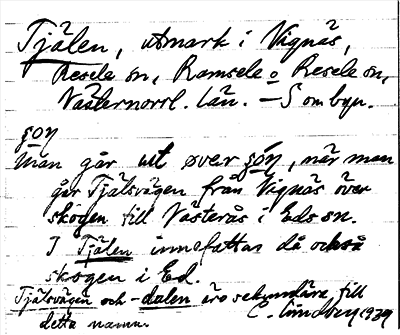 Tjälen, utmark i Vignäs,
Resele sn, Ramsele o Resele sn,
Västernorrl. län. – S om byn.
söy
man går ut över söy, när man
går Tjälsvägen från Vignäs över
skogen till Västerås i Eds sn.
I Tjälen innefattas då också
skogen i Ed.
Tjälsvägen och -dalen äro sekundära till
detta namn. C. Lindberg 1929